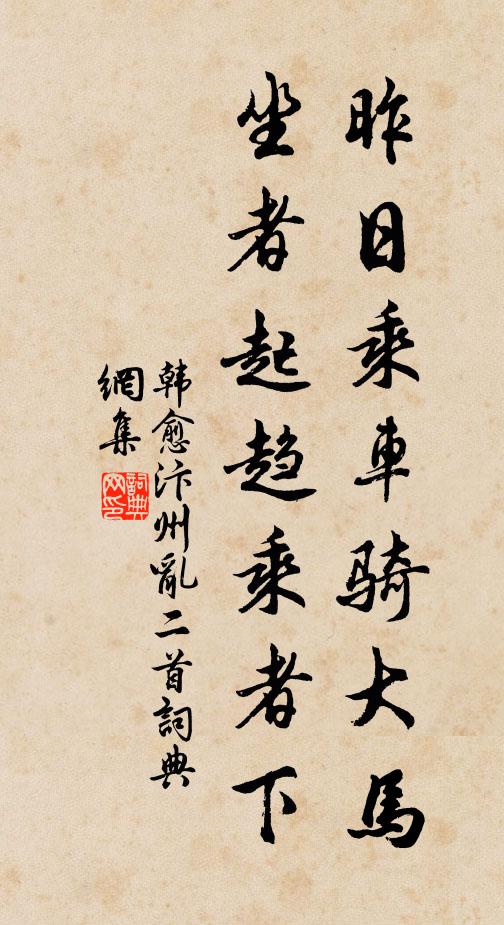 昨日乘車騎大馬
坐者起趋乘者下
韩愈汴州亂二首詞典
網集
詞典网印